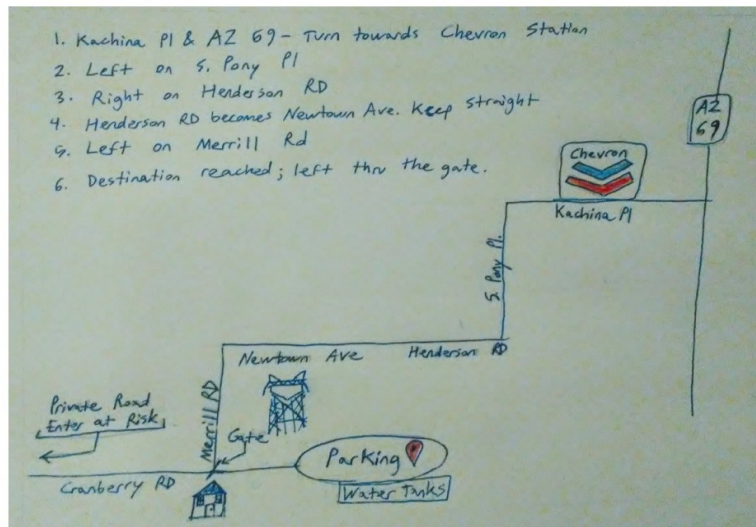 1. Kachina Pl & AZ 69 - Turn towards Chevron Station
2. Left on S. Pony Pl
3. Right on Henderson RD
4. Henderson RD becomes Newtown Ave. Keep straight
5. Left on Merrill Rd
6. Destination reached; left thru the gate.
AZ
69
Chevron
Kachina Pl
S. Pony Pl.
Newtown Ave
Henderson RD
Merrill RD
Private Road
Enter at Risk
Gate
Parking
Cranberry RD
Water Tanks